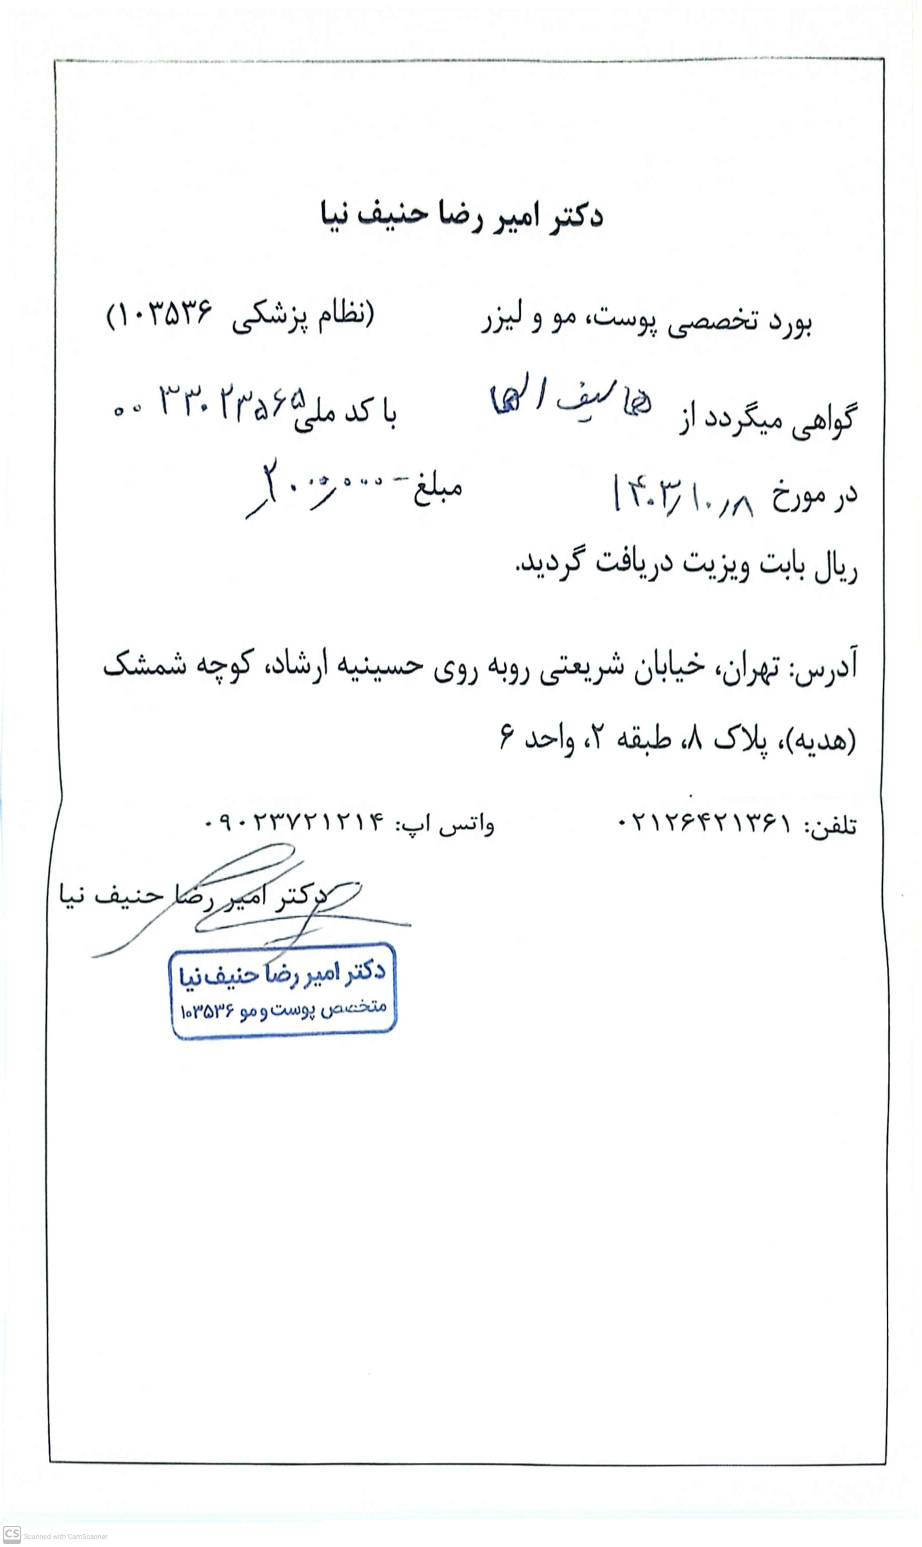 دکتر امیر رضا حنیف نیا
بورد تخصصی پوست، مو و لیزر (نظام پزشکی ۱۰۳۵۳۶)
گواهی میگردد از با کد ملی
در مورخ ۱۴۰۳/۱۰/۸ مبلغ
ریال بابت ویزیت دریافت گردید.
آدرس: تهران، خیابان شریعتی روبه روی حسینیه ارشاد، کوچه شمشک
(هدیه)، پلاک ۸، طبقه ۲، واحد ۶
تلفن: ۰۲۱۲۶۴۲۱۳۶۱ واتس اپ: ۰۹۰۲۳۷۲۱۲۱۴
دکتر امیر رضا حنیف نیا
دکتر امیر رضا حنیف‌نیا
متخصص پوست و مو ۱۰۳۵۳۶
CS Scanned with CamScanner